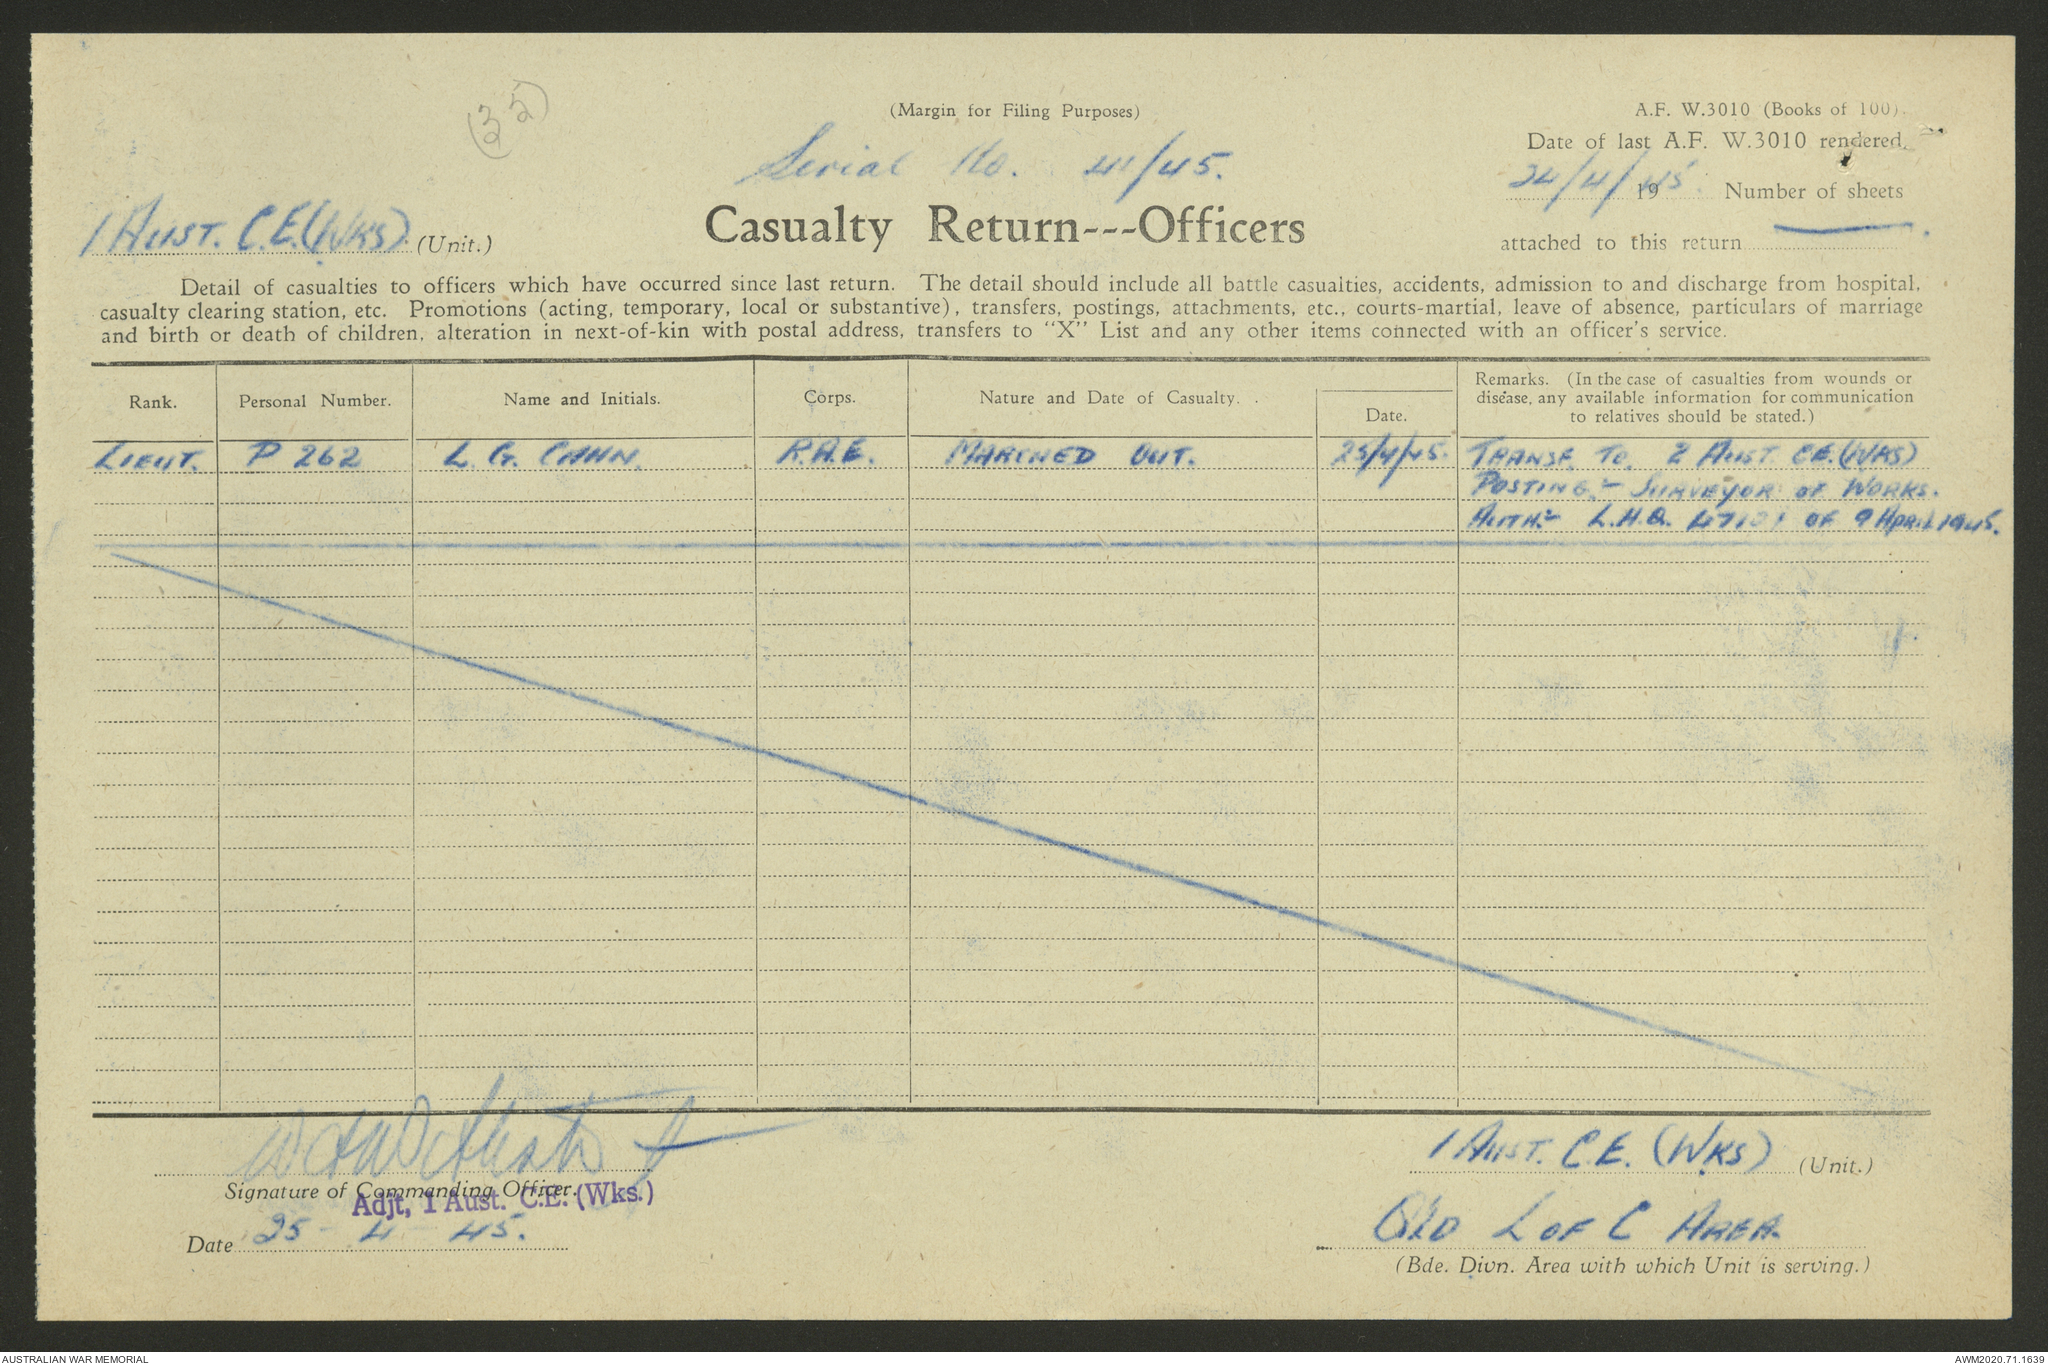 (35)
(Margin for Filing Purposes)
A.F. W.3010 (Books of 100).
Serial No. 41/45.
Date of last A.F. W.3010 rendered
24/4/1945. Number of sheets
attached to this return
1 AUST. C.E. (WKS). (Unit.)
Casualty Return---Officers
Detail of casualties to officers which have occurred since last return. The detail should include all battle casualties, accidents, admission to and discharge from hospital,
casualty clearing station, etc. Promotions (acting, temporary, local or substantive), transfers, postings, attachments, etc., courts-martial, leave of absence, particulars of marriage
and birth or death of children, alteration in next-of-kin with postal address, transfers to "X" List and any other items connected with an officer's service.
Rank. Personal Number. Name and Initials. Corps. Nature and Date of Casualty. Date. Remarks. (In the case of casualties from wounds or
disease, any available information for communication
to relatives should be stated.)
LIEUT. P 262 L. G. CAHN. R.A.E. MARCHED OUT. 25/4/45. TRANSF. TO. 2 AUST. C.E. (WKS)
POSTING:- SURVEYOR OF WORKS.
AUTH:- L.H.Q. OF 9 APRIL 1945.
Signature of Commanding Officer.
Adjt, 1 Aust. C.E. (Wks.)
Date 25 - 4 - 45.
1 AUST. C.E. (WKS) (Unit.)
QLD L OF C AREA.
(Bde. Divn. Area with which Unit is serving.)
AUSTRALIAN WAR MEMORIAL
AWM2020.71.1639